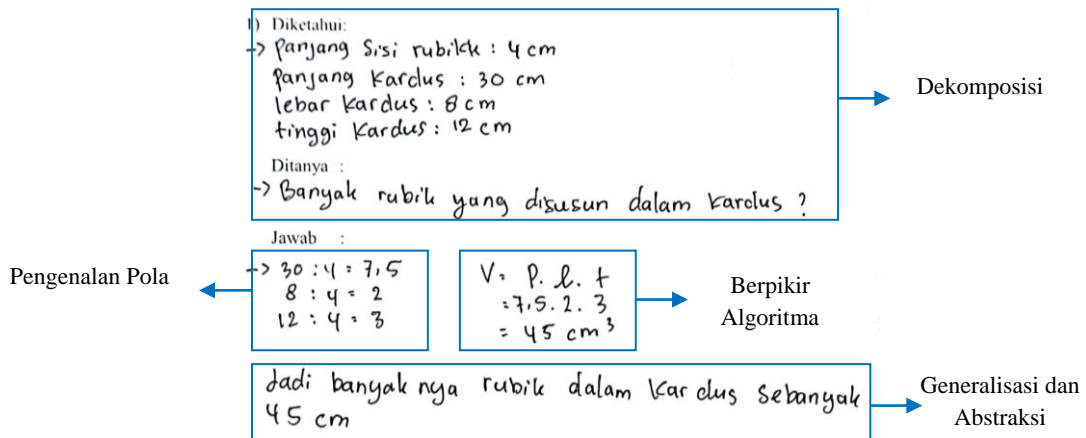 1) Diketahui:
-> Panjang Sisi rubikk : 4 cm
Panjang Kardus : 30 cm
lebar Kardus : 8 cm
tinggi Kardus : 12 cm
Dekomposisi
Ditanya :
-> Banyak rubik yang disusun dalam Kardus ?
Jawab :
Pengenalan Pola
-> 30 : 4 = 7,5
8 : 4 = 2
12 : 4 = 3
V = P. l. t
= 7,5. 2. 3
= 45 cm³
Berpikir
Algoritma
Jadi banyak nya rubik dalam Kardus Sebanyak
45 cm
Generalisasi dan
Abstraksi